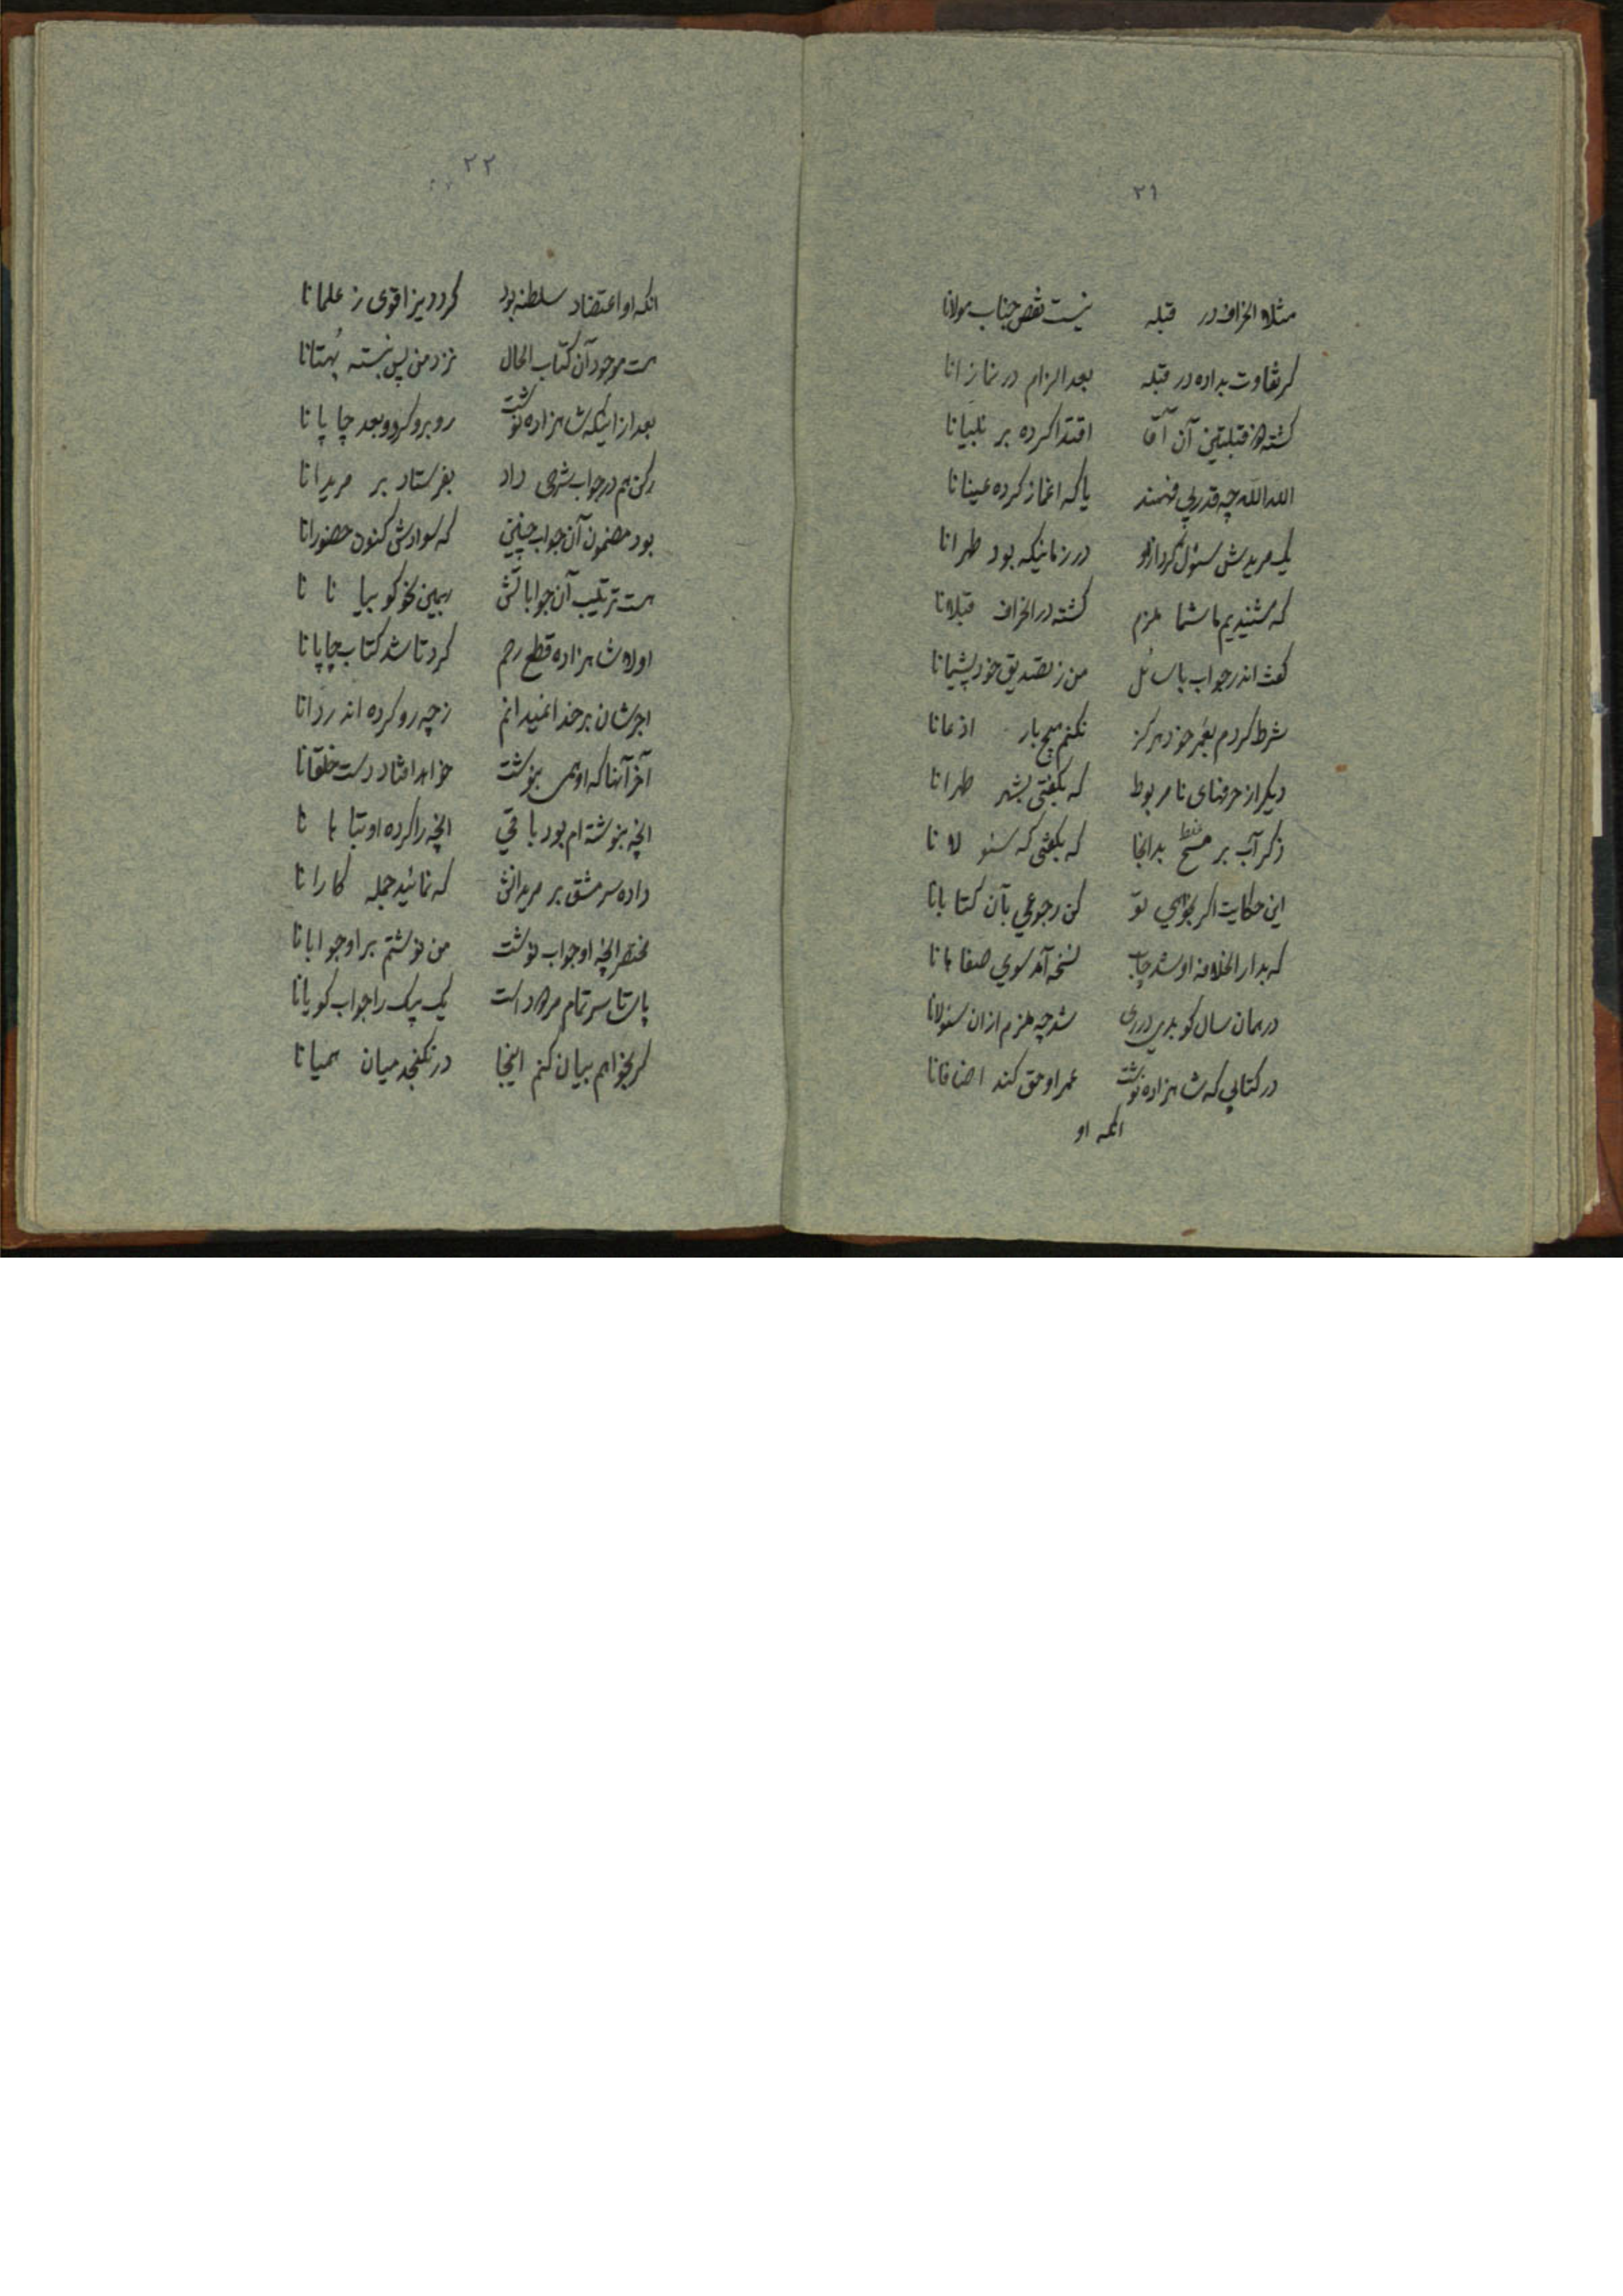 ۲۱
مثلا انحراف در قبله نیست نقص جناب مولانا
کر تفاوت بداده در قبله بعد الزام در نمازانا
کشته ذو قبلتین آن آقا اقتدا کرده بر نلبیانا
الله الله چه قدر بی فهمند یا که اغماز کرده عینانا
یک مریدش سئول کرد ازو در زمانیکه بود طهرانا
که شنیدیم ما شما ملزم کشته در انحراف قبلانا
گفت اندر جواب با سائل من ز تصدیق خود پشیمانا
شرط کردم بغیر خود هرکز نکنم هیچ بار اذعانا
دیگر از حرفهای نامربوط که بگفتی بشهر طهرانا
ذکر آب بر مسح بدانجا که بگفتی که سئولانا
این حکایت اکر بخواهی تو کن رجوعی بآن کتابانا
که بدار الخلافه او شد چاپ نسخه آمد سوی صفاهانا
در همان سال کو بدی در ری شد چه ملزم ازان سئولانا
در کتابی که شاهزاده نوشت عمر او حق کند اضافانا
انکه او
۲۲
انکه او اعتضاد سلطنه بود کرد دیزا قوی ز علمانا
هست موجود آن کتاب الحال نزد من پس نبسته بُهتانا
بعد از اینکه شاهزاده نوشت روبرو کرد و بعد چاپانا
رکن هم در جواب شرحی داد بفرستاد بر مریدانا
بود مضمون آن جواب چنین که سوادش کنون حضورانا
هست ترتیب آن جواباتش ببین نحو کو بیانانا
اولا شاهزاده قطع رحم کرد تا شد کتاب چاپانا
اجرشان بر خدا نمیدانم ز چه رو کرده اند ردّانا
آخر آنها که او همی بنوشت خواهد افتاد دست خلقانا
انچه بنوشته ام بود باقی انچه را کرده او تباهانا
داده سرمشق بر مریدانش که نمائید جمله کارانا
مختصر انچه او جواب نوشت من نوشتم بر او جوابانا
پای تا سر تمام مردود است یک بیک را جواب کویانا
کر بخواهم بیان کنم اینجا در نکنجد میان همیانا